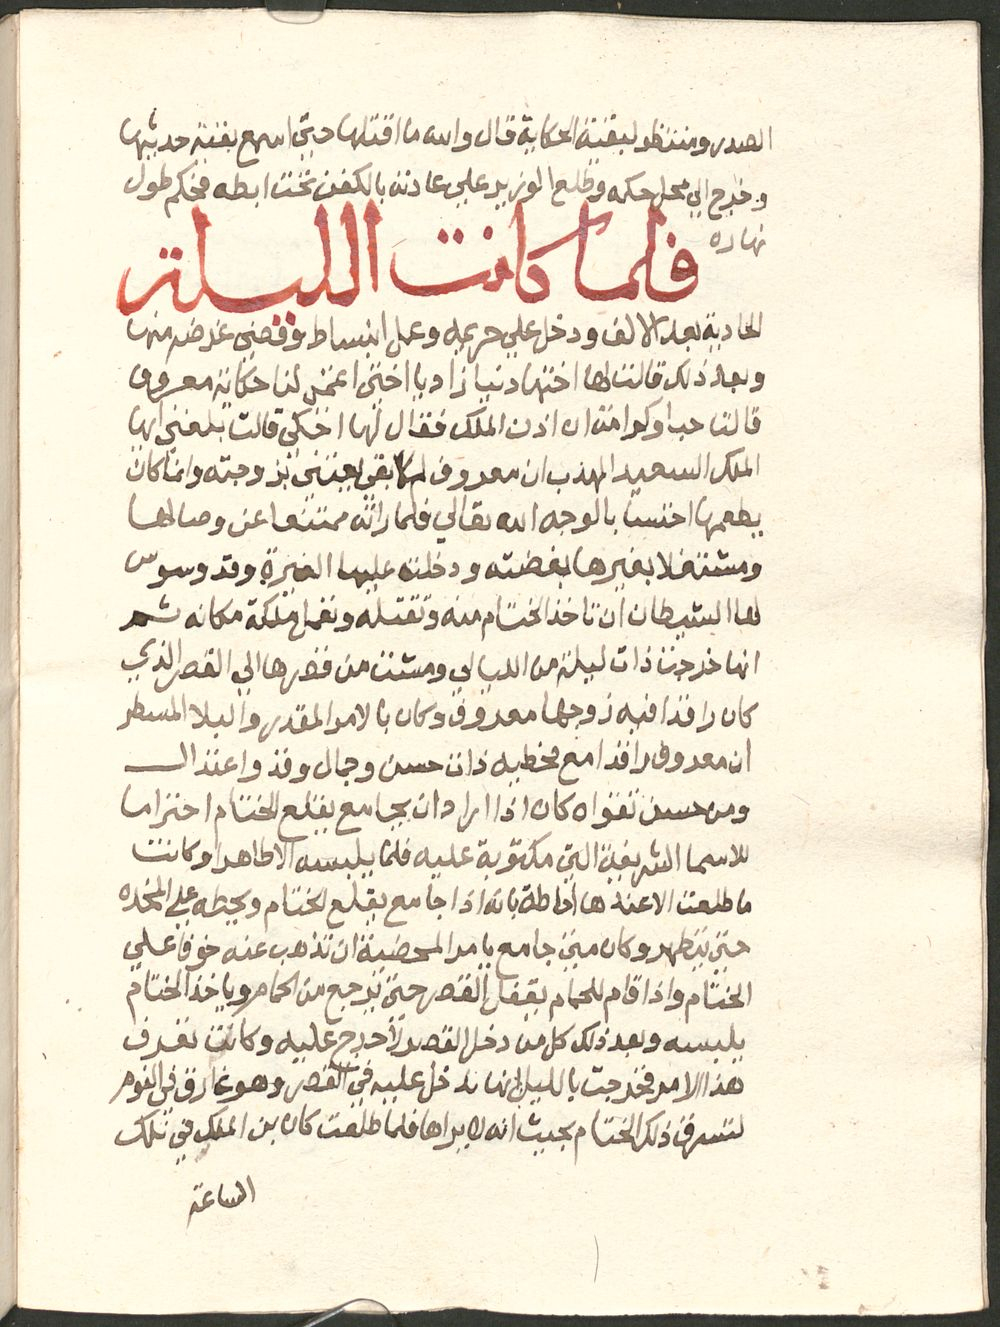 الصدر ومنتظر لبقية الحكاية قال والله ما اقتلها حتي اسمع بقية حديثها
وخرج الي محل حكمه وطلع الوزير علي عادته بالكفن تحت ابطه فحكم طول
نهاره
فلما كانت الليلة
الحادية بعد الالف ودخل علي حريمه وعمل انبساط وقضي غرضه منها
وبعد ذلك قالت لها اختها دنيا زاد يا اختي اتممي لنا حكاية معروف
قالت حبا وكرامة ان اذن الملك فقال لها احكي قالت بلغني ايها
الملك السعيد المهذب ان معروف لم كا بقي يعتني بزوجته وانما كان
يطعمها احتسابا لوجه الله تعالي فلما راته ممتنعا عن وصالها
ومشتغلا بغيرها بغضته ودخلت عليها الغيرة وقد وسوس
لها الشيطان ان تاخذ الختام منه وتقتله وتعمل ملكة مكانه ثم
انها خرجت ذات ليلة من الليالي ومشت من قصرها الي القصر الذي
كان راقدا فيه زوجها معروف وكان بالامر المقدر والبلا المسطر
ان معروف راقدا مع محظيه ذات حسن وجمال وقد واعتدال
ومن حسن تقواه كان اذا اراد ان يجامع يقلع الختام احتراما
للاسما الشريفة التي مكتوبة عليه فلما يلبسه الا طاهرا وكانت
ما طلعت الا عندها احاطة بانه اذا جامع يقلع الختام ويحطه علي المخده
حتي يتطهر وكان متي جامع يامر المحضية ان تذهب عنه خوفا علي
الختام واذا قام للحمام يقفل القصر حتي يرجع من الحمام وياخذ الختام
يلبسه وبعد ذلك كل من دخل القصر لا حرج عليه وكانت تعرف
هذا الامر فخرجت بالليل انها تدخل عليه في القصر وهو غارق في النوم
لتسرق ذلك الختام بحيث انه لا يراها فلما طلعت كان بن الملك في تلك
الساعة